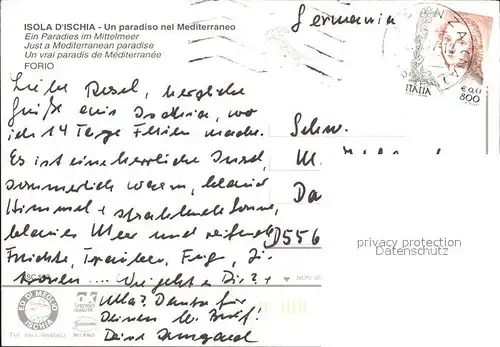 ISOLA D'ISCHIA - Un paradiso nel Mediterraneo
Ein Paradies im Mittelmeer
Just a Mediterranean paradise
Un vrai paradis de Méditerranée
FORIO
Germania
ITALIA
€ 0,41
800
Liebe Rosel, herzliche
Grüße aus Ischia, wo
ich 14 Tage Ferien mache.
Es ist eine herrliche Insel,
sommerlich warm, blauer
Himmel + strahlende Sonne,
blaues Meer und reifende
Früchte, Trauben, Feig, Zi-
tronen .... Wie geht es Dir? +
Ulla? Danke für
Deinen lb. Brief!
Deine Irmgard
Schw.
M.
Da
D556
privacy protection
Datenschutz
ED. DI MEGLIO
ISCHIA
MILANO